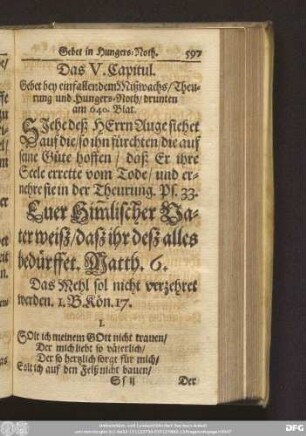 Gebet in Hungers-Noth. 597
Das V. Capitul.
Gebet bey einfallendem Mißwachs/Theu-
rung und Hungers-Noth/drunten
am 640. Blat.
SIehe deß HErrn Auge siehet
auf die/so ihn fürchten/die auf
seine Güte hoffen/ daß Er ihre
Seele errette vom Tode/ und er-
nehre sie in der Theurung. Ps. 33.
Euer Him̃lischer Va-
ter weiß/daß ihr deß alles
bedürffet. Matth. 6.
Das Mehl sol nicht verzehret
werden. 1. B. Kön. 17.
1.
SOlt ich meinem GOtt nicht trauen/
Der mich liebt so väterlich/
Der so hertzlich sorgt für mich/
Solt ich auf den Felß nicht bauen/
Ss ij Der
DFG